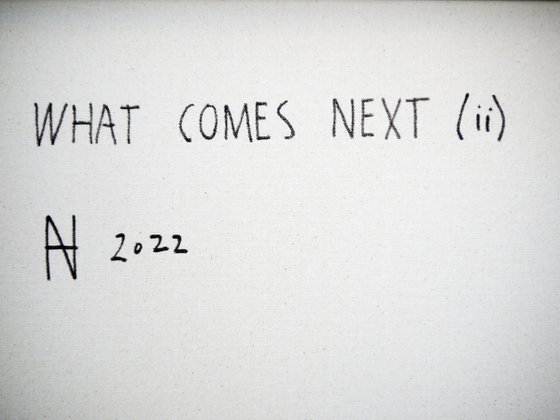 WHAT COMES NEXT (ii)
2022